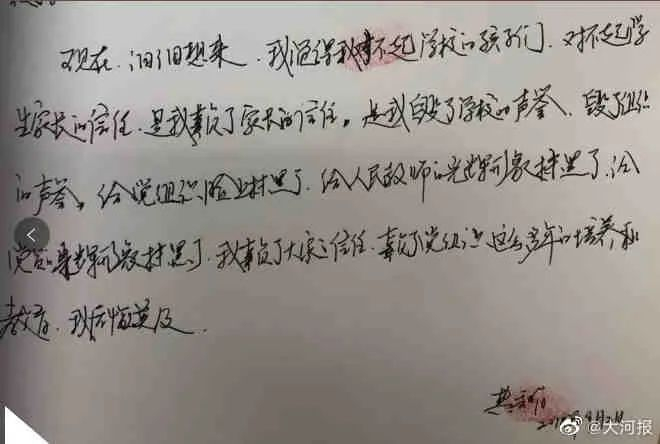 现在,泪泪想来,我觉得我对不起学校的孩子们,对不起学
生家长的信任,是我辜负了家长的信任。是我毁了学校的声誉,毁了组织
的声誉,给党组织脸上抹黑了,给人民教师的光辉形象抹黑了,给
党的光辉形象抹黑了,我辜负了大家的信任,辜负了党组织这么多年的培养和
教育,我后悔莫及。
@大河报